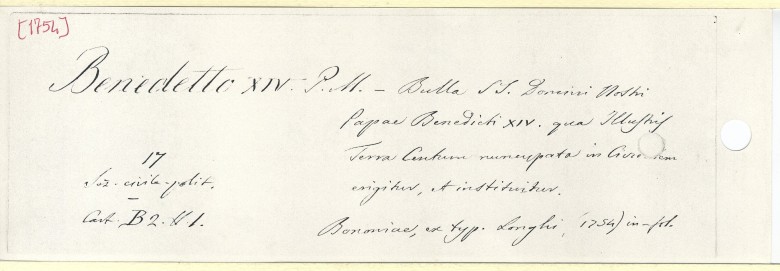 [1754]
Benedetto XIV. P. M. - Bulla SS. Domini Nostri
Papae Benedicti XIV. qua Illustris
Terra Centum nuncupata in Civitatem
erigitur, et instituitur.
Bononiae, ex typ. Longhi, (1754) in-fol.
17
Soz. civile-polit.
Cart. B2. N1.